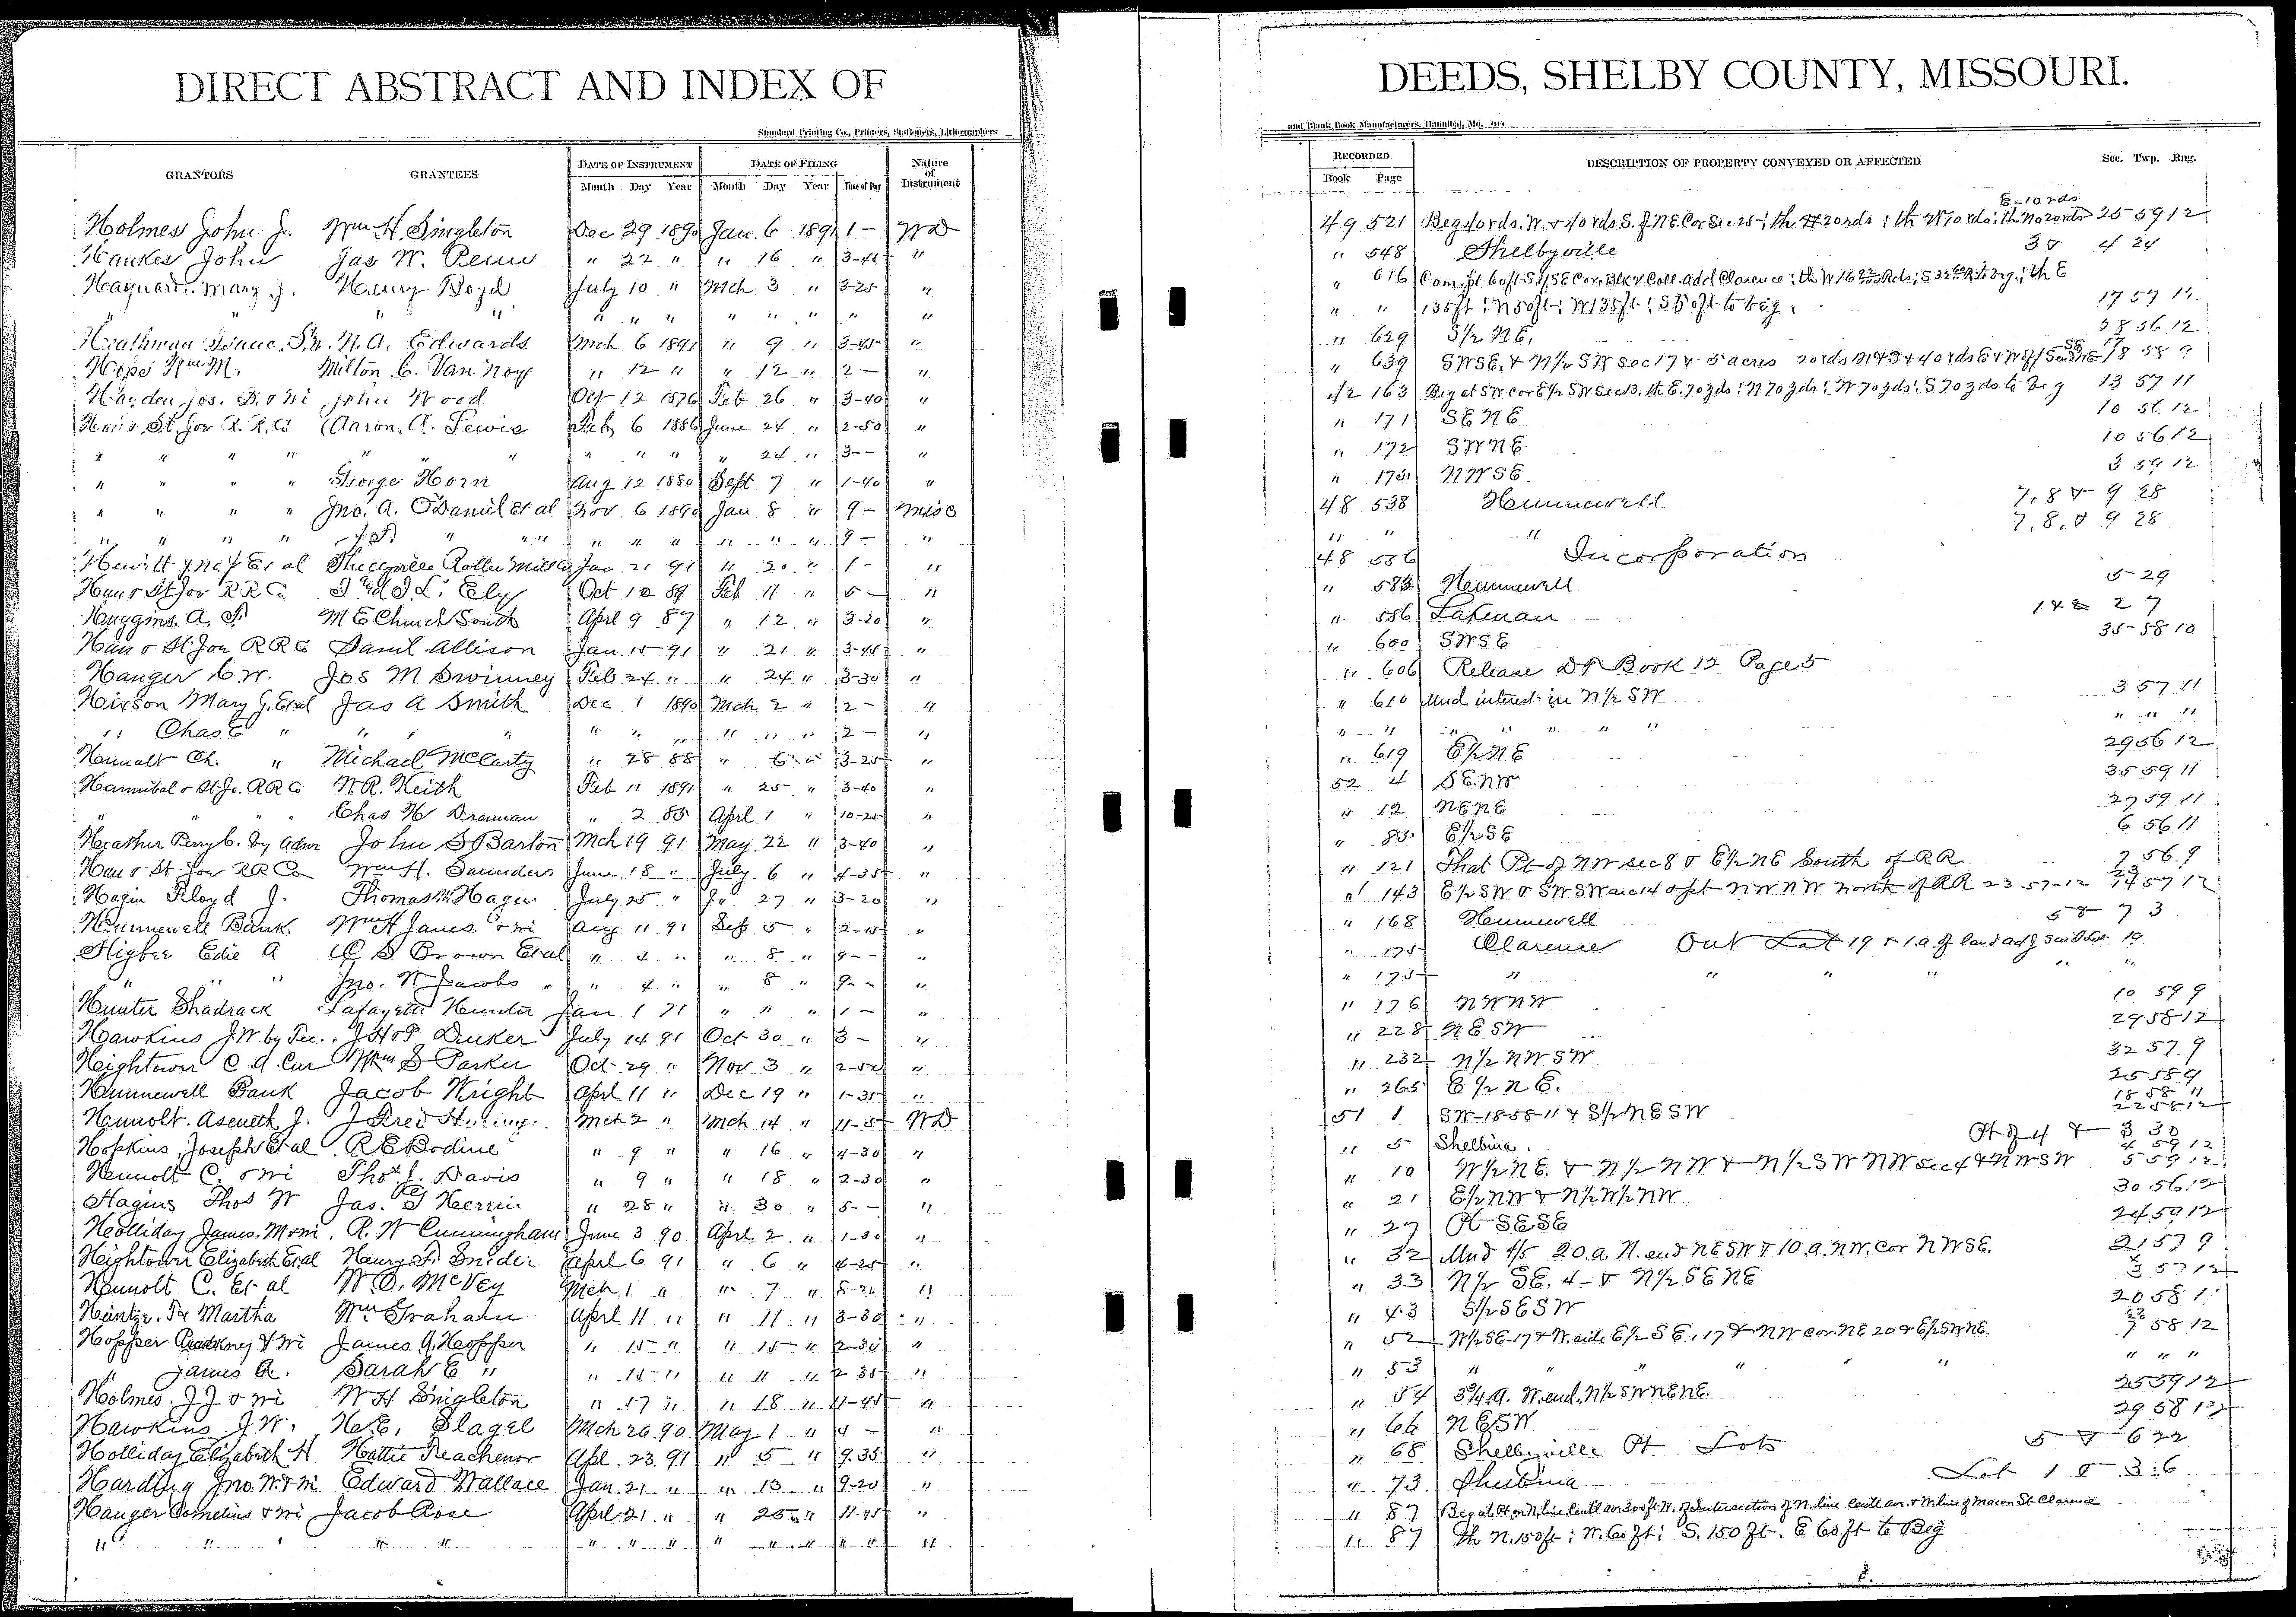 DIRECT ABSTRACT AND INDEX OF
Standard Printing Co., Printers, Stationers, Lithographers
GRANTORS GRANTEES DATE OF INSTRUMENT DATE OF FILING Nature of Instrument
Month Day Year Month Day Year Time of Day
Holmes John J. Wm H Singleton Dec 29 1890 Jan. 6 1891 1 - WD
Hawkes John Jas W. " 22 " " 16 " 3-41 "
Hayward Mary J. Henry Boyd July 10 " Mch 3 " 3-25 "
" " " " " " " " " " " "
Heathman Isaac, N. A. Edwards Mch 6 1891 " 9 " 3-45 "
Wm M. Milton C. Van Noy " 12 " " 12 " 2 - "
Hayden Jos. B. & wi John Wood Oct 12 1876 Feb 26 " 3-40 "
Han & St Joe R. R. Co Aaron. A. Lewis Feb 6 1886 June 24 " 2-50 "
" " " " " " " " " " " 24 " 3-- "
" " " " George Horn Aug 12 1880 Sept 7 " 1-40 "
" " " " Jno. A. O'Daniel et al Nov. 6 1890 Jan 8 " 9 - Misc
" " " " " " " " " " " " " 9 - "
Hewitt Et al Roller Mills Jan 21 91 " 20 " 1 - "
Han & St Joe RR Co Ely Oct 12 89 Feb 11 " 5 - "
Huggins. A. M E Church South April 9 87 " 12 " 3-20 "
Han & St Joe RR Co Danil Allison Jan 15 91 " 21 " 3-45 "
Hanger C. W. Jos M Swinney Feb 24 " " 24 " 3-30 "
Hixson Mary J. Et al Jas A Smith Dec 1 1890 Mch 2 " 2 - "
" Chas E " " " " " " " " " " 2 - "
Hennalt Ch. " Michael McCarty " 28 88 " 6 " 3-25 "
Hannibal & St Jo. RR Co W. R. Keith Feb 11 1891 " 25 " 3-40 "
" " " Chas W Drennan " 2 85 April 1 " 10-25 "
Heather Perry C. by Admr John S Barton Mch 19 91 May 22 " 3-40 "
Han & St Joe RR Co Wm H. Saunders June 18 " July 6 " 4-35 "
Hagin Floyd J. Thomas W Hagin July 25 " " 27 " 3-20 "
Hunnewell Bank. Wm H Janes & wi Aug 11 91 Sept 5 " 2-15 "
Higbee Edie A C S Brown Et al " 4 " " 8 " 9-- "
" " " Jno. W Jacobs " " 4 " " 8 " 9-- "
Hunter Shadrack Lafayette Hunter Jan 1 71 " " " 1 - "
Hawkins J. W. by Tee. Duker July 14 91 Oct 30 " 3 - "
Hightower C. A. Cur Wm S Parker Oct 29 " Nov 3 " 2-50 "
Hunnewell Bank Jacob Wright April 11 " Dec 19 " 1-35 "
Hennolt. Aseneth J. J Fred Mch 2 " Mch 14 " 11-5 WD
Hopkins, Joseph Et al R E Bodine " 9 " " 16 " 4-30 "
Hennolt C. & wi Thos L. Davis " 9 " " 18 " 2-30 "
Hagins Thos W Jas. Herrin " 28 " " 30 " 5-- "
Holliday James. M & wi. R. W Cunningham June 3 90 April 2 " 1-30 "
Hightower Elizabeth Et al Henry F. Snider April 6 91 " 6 " 4-25 "
Hennolt C. Et al W. O. McVey Mch 1 " " 7 " 8-20 "
Martha Wm Graham April 11 " " 11 " 3-30 "
Hopper & wi James A. Hopper " 15 " " 15 " 2-30 "
" James A. Sarah E " " 15 " " " " 2 35 "
Holmes. J J & wi W H Singleton " 17 " " 18 " 11-45 "
Hawkins J. W. H. E. Slagel Mch 26 90 May 1 " 4 - "
Holliday Elizabeth H. Hattie Teachenor Apl. 23. 91 " 5 " 9.35 "
Harding Jno. W & wi Edward Wallace Jan. 21 " " 13 " 9-20 "
Hanger Cornelius & wi Jacob Rose April 21 " " 25 " 11-45 "
" " " " " " " " " " " " "
DEEDS, SHELBY COUNTY, MISSOURI.
and Blank Book Manufacturers, Hannibal, Mo.
RECORDED DESCRIPTION OF PROPERTY CONVEYED OR AFFECTED Sec. Twp. Rng.
Book Page
E-10 rds
49 521 Beg 40 rds. W. & 40 rds S. of NE. Cor Sec. 25; th 20 rds; th W 10 rds; th N 20 rds 25 59 12
" 548 Shelbyville 3 & 4 24
" 616 Com. pt 60 ft S of SE Cor. Blk 4 Coll. add Clarence; th W Rds; S to beg.; th E
" " 135 ft; N 50 ft; W 135 ft; S 50 ft to beg. 17 57 12
" 629 S/2 NE. 28 56 12
" 639 SWSE. & N/2 SW sec 17 & 5 acres 18 58 9
42 163 Beg at SW cor E/2 SW Sec 13. th E. 70 yds; N 70 yds; W 70 yds; S 70 yds to beg 13 57 11
" 171 SENE 10 56 12
" 172 SWNE 10 56 12
" 173 NWSE 3 59 12
48 538 Hunnewell 7, 8 & 9 28
" " " 7, 8, & 9 28
48 556 Incorporation
" 583 Hunnewell 5-29
" 586 Lakenan 1 & 2 27
" 600 SWSE 35-58 10
" 606 Release DT Book 12 Page 5
" 610 Und interest in N/2 SW 3 57 11
" " " " " " " " " "
" 619 E/2 NE 29 56 12
52 4 SE. NW 35 59 11
" 12 NENE 27 59 11
" 85 E/2 SE 6 56 11
" 121 That Pt of NW sec 8 & E/2 NE South of RR 7 56 9
" 143 E/2 SW & SWSW sec 14 & pt NWNW north of RR 23-57-12 14 57 12
" 168 Hunnewell 5 & 7 3
" 175 Clarence Out Lot 19 & 1 a. of land adj said Lot 19
" 175 " " " " " "
" 176 NWNW 10 59 9
" 228 NESW 29 58 12
" 232 N/2 NWSW 32 57 9
" 265 E/2 NE. 25 58 9
51 1 SW-18-58-11 & S/2 NESW 18 58 11
22 58 12
" 5 Shelbina. Pt of 4 & 3 30
" 10 W/2 NE. & N/2 NW & N/2 SW NW sec 4 & NWSW 4 59 12
5 59 12
" 21 E/2 NW & N/2 W/2 NW 30 56 12
" 27 Pt SESE 24 59 12
" 32 Und 4/5 20. a. N. end NESW & 10. a. NW. Cor NWSE. 21 57 9
" 33 N/2 SE. 4- & N/2 SENE 3 57 12
" 43 S/2 SESW 20 58 1
" 52 W/2 SE-17 & W. side E/2 SE. 17 & NW cor. NE 20 & E/2 SWNE. 7 58 12
" 53 " " " " " " " "
" 54 3 3/4 a. W. end, N/2 SWNENE. 25 59 12
" 66 NESW 29 58 12
" 68 Shelbyville Pt Lots 5 & 6 22
" 73 Shelbina Lot 1 & 3. 6
" 87 Beg at Pt on N. line Coutl av 300 ft W. of Intersection of N. line Coutl av. & W. line of Macon St. Clarence
" 87 th N. 150 ft; W. 60 ft; S. 150 ft. E 60 ft to Beg